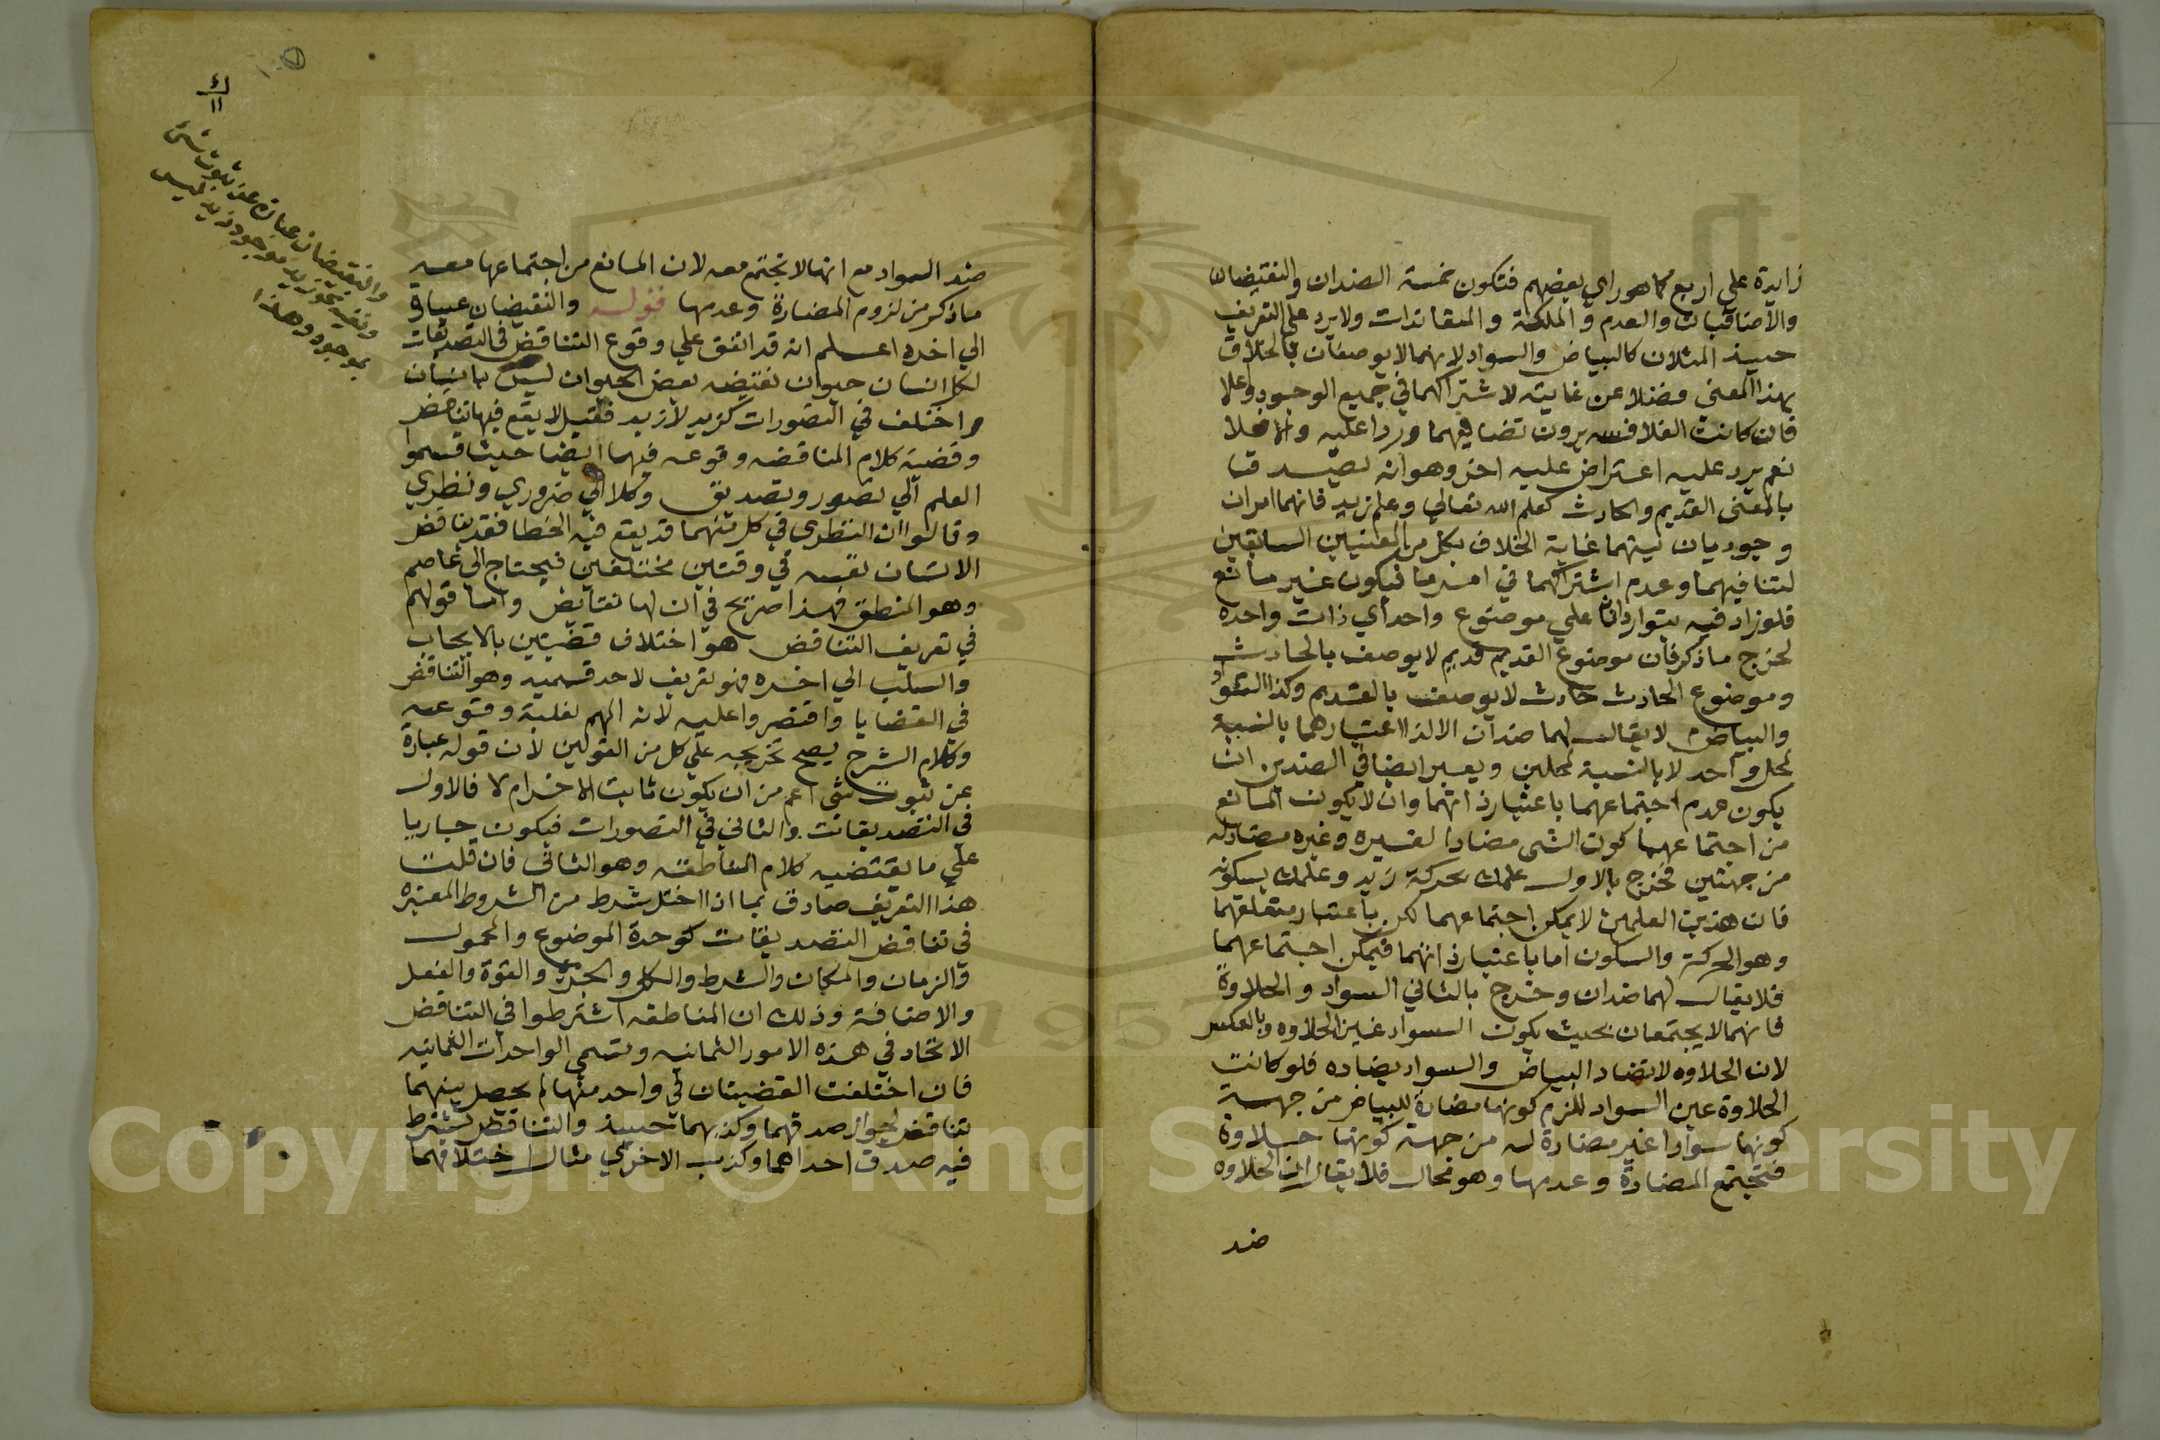 زايدة على اربع كما هو راي بعضهم فتكون خمسة الضدان والنقيضان
والاضافيات والعدم والملكة والمتقاندات ولا يرد على التعريف
حينيذ المثلان كالبياض والسواد لانهما لا يوصفان بالخلاف
بهذا المعنى فضلا عن غايته لاشتراكهما في جميع الوجود وعلا
فان كانت الفلاسفه يرون تضايفهما وردا عليه والا فلا
نعم يرد عليه اعتراض عليه اخر وهو انه يصدق
بالمعنى القديم والحادث كعلم الله تعالي وعلم زيد فانهما امران
وجوديان بينهما غاية الخلاف بكل من المعنيين السابقين
لتنافيهما وعدم اشتراكهما في امر ما فيكون غير مانع
فلو زاد فيه يتواردان علي موضوع واحد اي ذات واحده
لخرج ما ذكر فان موضوع القديم قديم لا يوصف بالحادث
وموضوع الحادث حادث لا يوصف بالقديم وكذا السواد
والبياض لا يقال لهما ضدان الا اذا اعتبارهما بالنسبة
لمحل واحد لا بالنسبة لمحلين ويعبر ايضا في الضدين ان
يكون عدم اجتماعهما باعتبار ذاتهما وان لا يكون المانع
من اجتماعهما كون الشي مضادا لغيره وغيره مضادا له
من جهتين فخرج بالاول علمك بحركة زيد وعلمك بسكونه
فان هذين العلمين لا يمكن اجتماعهما لكن باعتبار متعلقهما
وهو الحركة والسكون اما باعتبار ذاتهما فيمكن اجتماعهما
فلا يقال لهما ضدان وخرج بالثاني السواد والحلاوة
فانهما لا يجتمعان بحيث يكون السواد عين الحلاوه وبالعكس
لان الحلاوه لا تضاد البياض والسواد يضاده فلو كانت
الحلاوة عين السواد للزم كونها مضادة للبياض من جهة
كونها سوادا غير مضادة له من جهة كونها حلاوة
فتجتمع المضادة وعدمها وهو محال فلا يقال ان الحلاوه
ضد
ضد السواد مع انها لا تجتمع معه لان المانع من اجتماعها معه
ما ذكر من لزوم المضادة وعدمها قوله والنقيضان عبارة
الي اخره اعلم انه قد اتفق علي وقوع التناقض في التصديقات
لكل انسان حيوان نقيضه بعض الحيوان ليس بانسان
واختلف في التصورات كزيد لا زيد فقيل لا يقع فيها تناقض
وقضية كلام المناقضه وقوعه فيهما ايضا حيث قسموا
العلم الي تصور وتصديق وكلا الي ضروري ونظري
وقالوا ان النظري في كل منهما قد يقع فيه الخطا فقد يناقض
الانسان نفسه في وقتين مختلفين فيحتاج الى عاصم
وهو المنطق فهذا صريح في ان لها نقايض واما قولهم
في تعريف التناقض هو اختلاف قضيتين بالايجاب
والسلب الي اخره فهو تعريف لاحد قسميه وهو التناقض
في القضايا واقتصروا عليه لانه المهم لغلبة وقوعه
وكلام الشرح يصح تخريجه علي كل من القولين لان قوله عبارة
عن ثبوت شي اعم من ان يكون ثابت لاخر ام لا فالاول
في التصديقات والثاني في التصورات فيكون جاريا
علي ما يقتضيه كلام المناطقه وهو الثاني فان قلت
هذا التعريف صادق بما اذا اختل شرط من الشروط المعتبرة
في تناقض التصديقات كوحدة الموضوع والمحمول
والزمان والمكان والشرط والكل والجزء والقوة والفعل
والاضافة وذلك ان المناطقه اشترطوا في التناقض
الاتحاد في هذه الامور الثمانيه وتسمى الواحدات الثمانيه
فان اختلفت القضيتان في واحد منها لم يحصل بينهما
تناقض لجواز صدقهما وكذبهما حينيذ والتناقض يشترط
فيه صدق احداهما وكذب الاخرى مثال اختلافهما
والنقيضان عبارة عن ثبوت شي
ونفيه نحو زيد موجود زيد ليس
بموجود وهذا
Copyright © King Saud University